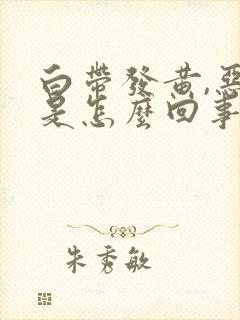 白帶發黃,惡
是怎麼回事
朱秀敏